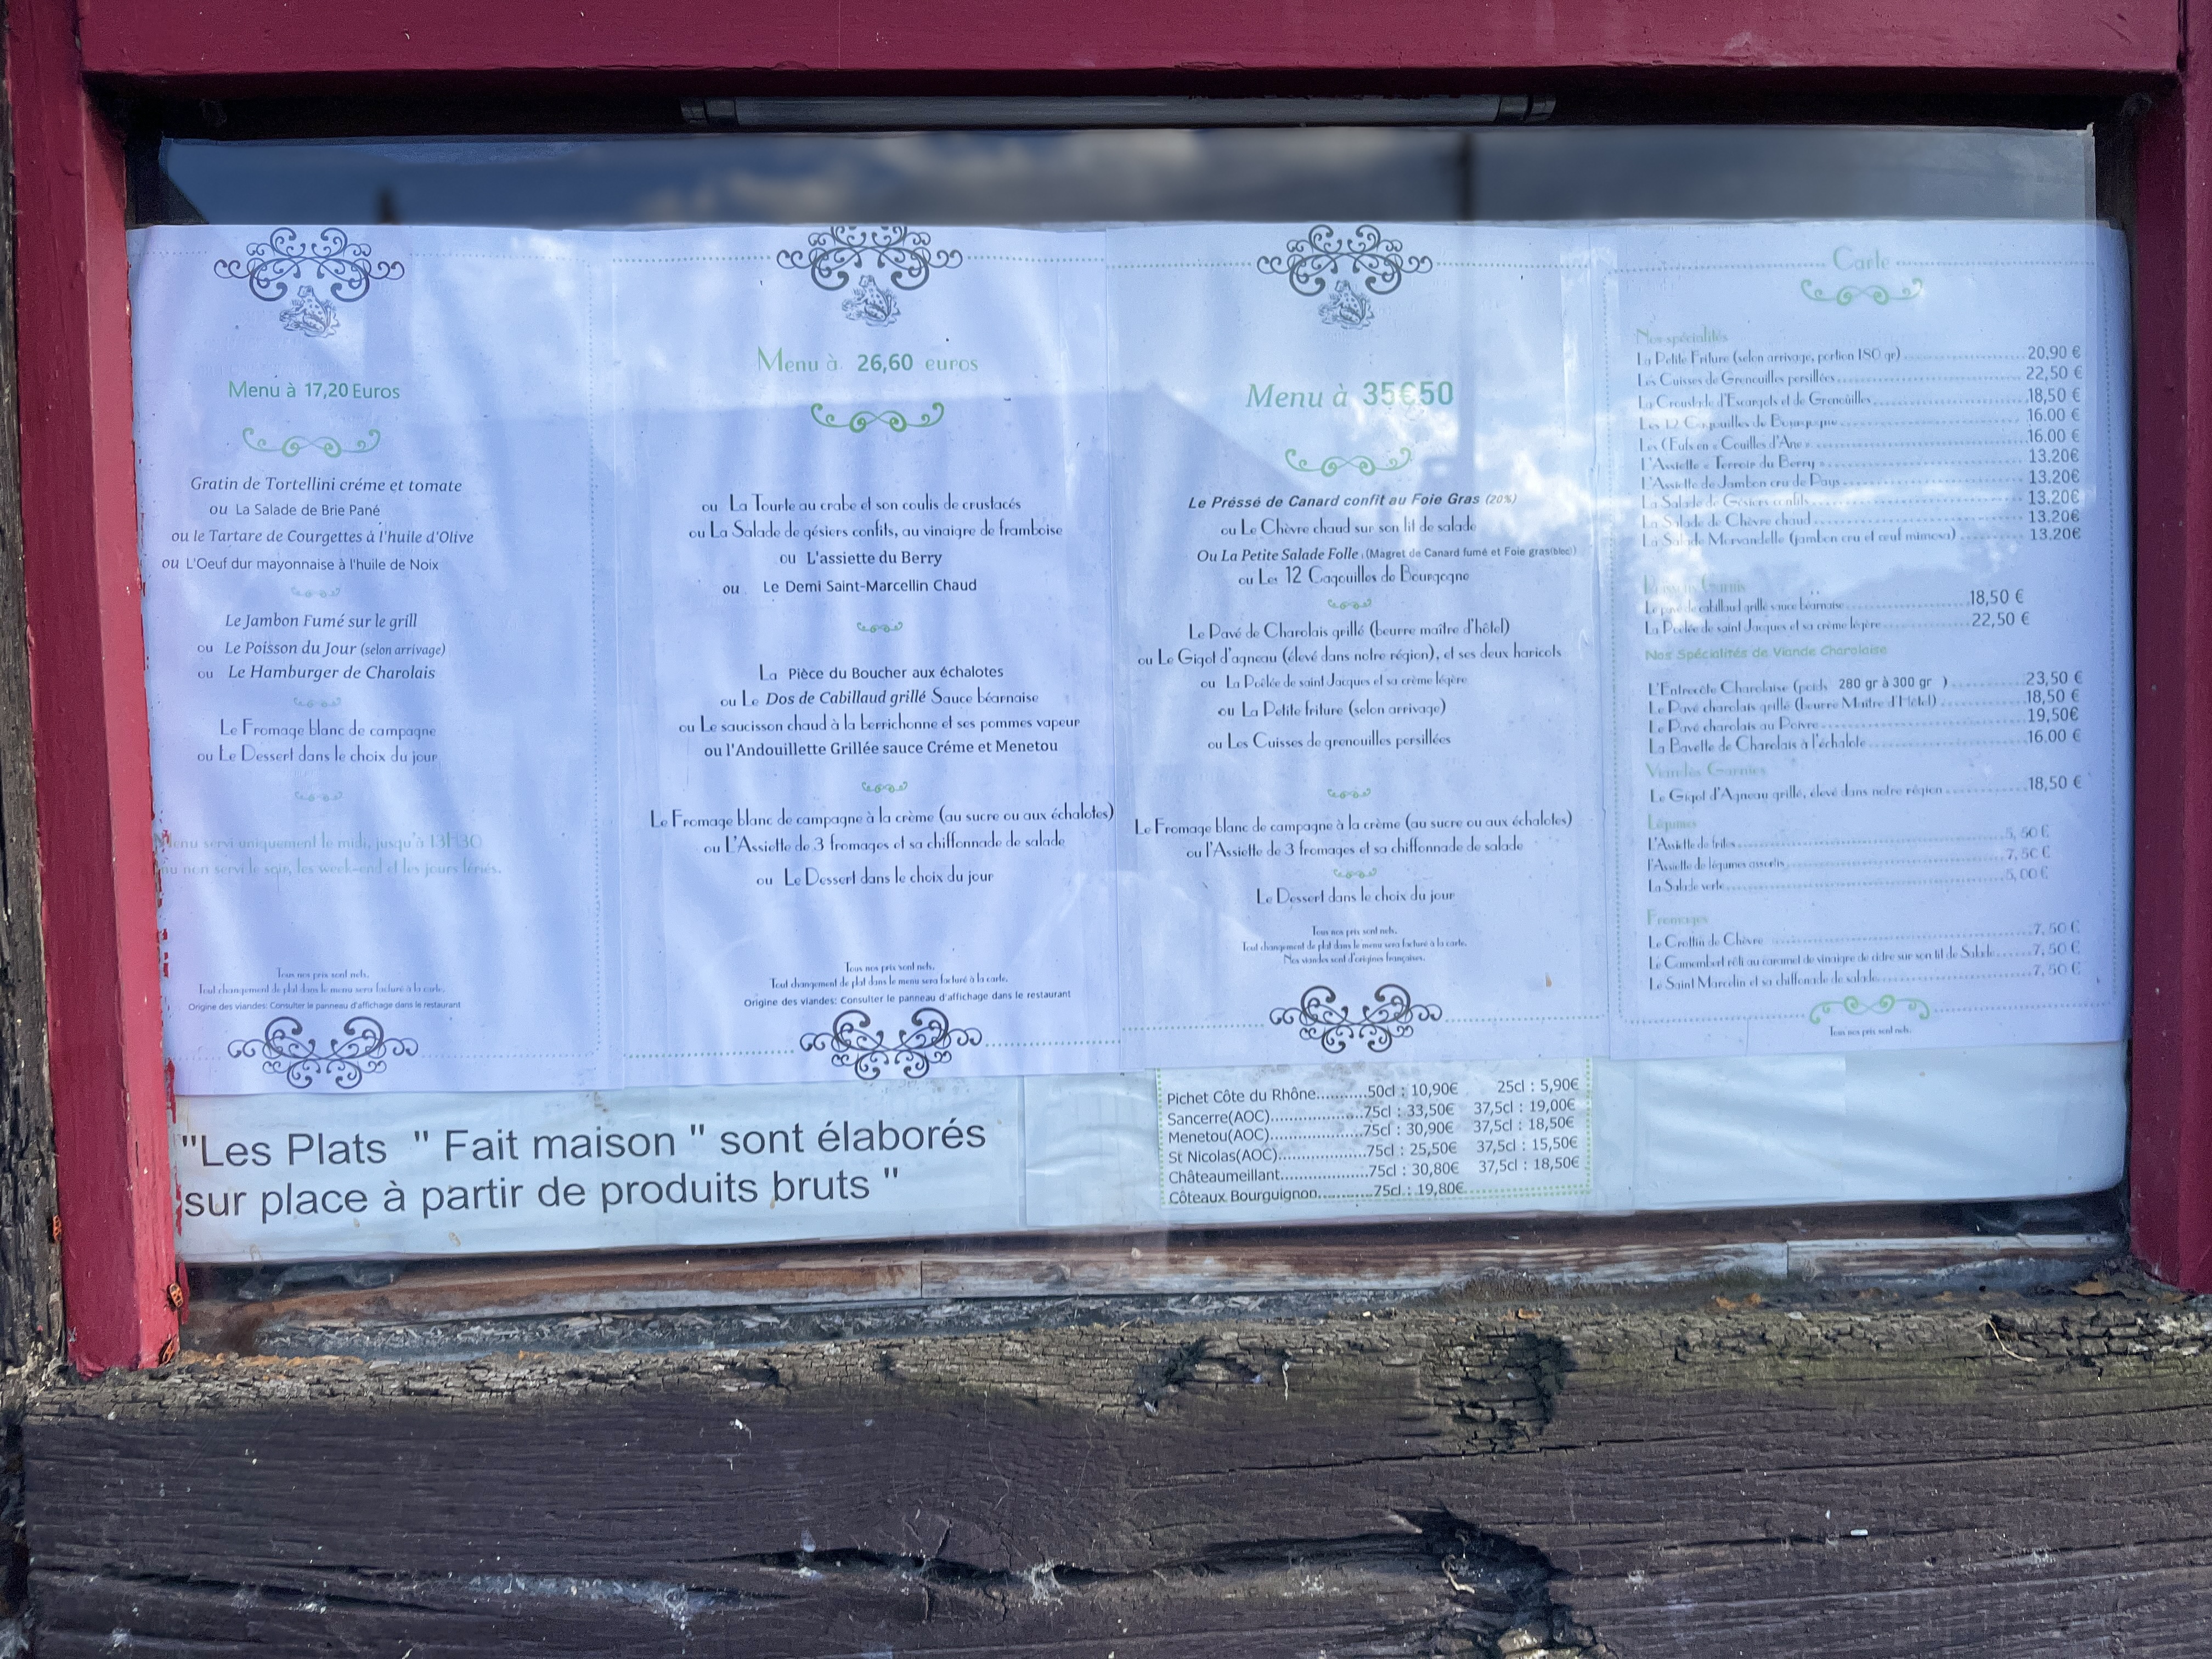 Menu à 17,20 Euros
Gratin de Tortellini créme et tomate
ou La Salade de Brie Pané
ou le Tartare de Courgettes à l'huile d'Olive
ou L'Oeuf dur mayonnaise à l'huile de Noix
Le Jambon Fumé sur le grill
ou Le Poisson du Jour (selon arrivage)
ou Le Hamburger de Charolais
Le Fromage blanc de campagne
ou Le Dessert dans le choix du jour
Menu servi uniquement le midi, jusqu'à 13H30
nu non servi le soir, les week-end et les jours fériés.
Tous nos prix sont nets.
Tout changement de plat dans le menu sera facturé à la carte.
Origine des viandes: Consulter le panneau d'affichage dans le restaurant
Menu à 26,60 euros
ou La Tourte au crabe et son coulis de crustacés
ou La Salade de gésiers confits, au vinaigre de framboise
ou L'assiette du Berry
ou Le Demi Saint-Marcellin Chaud
La Pièce du Boucher aux échalotes
ou Le Dos de Cabillaud grillé Sauce béarnaise
ou Le saucisson chaud à la berrichonne et ses pommes vapeur
ou l'Andouillette Grillée sauce Créme et Menetou
Le Fromage blanc de campagne à la crème (au sucre ou aux échalotes)
ou L'Assiette de 3 fromages et sa chiffonnade de salade
ou Le Dessert dans le choix du jour
Tous nos prix sont nets.
Tout changement de plat dans le menu sera facturé à la carte.
Origine des viandes: Consulter le panneau d'affichage dans le restaurant
Menu à 35€50
Le Préssé de Canard confit au Foie Gras (20%)
ou Le Chèvre chaud sur son lit de salade
Ou La Petite Salade Folle (Magret de Canard fumé et Foie gras(bloc))
ou Les 12 Cagouilles de Bourgogne
Le Pavé de Charolais grillé (beurre maître d'hôtel)
ou Le Gigot d'agneau (élevé dans notre région), et ses deux haricots
ou La Poêlée de saint Jacques et sa crème légère
ou La Petite friture (selon arrivage)
ou Les Cuisses de grenouilles persillées
Le Fromage blanc de campagne à la crème (au sucre ou aux échalotes)
ou l'Assiette de 3 fromages et sa chiffonnade de salade
Le Dessert dans le choix du jour
Tous nos prix sont nets.
Tout changement de plat dans le menu sera facturé à la carte.
Nos viandes sont d'origines françaises.
Carte
Nos spécialités
La Petite Friture (selon arrivage, portion 180 gr) 20,90 €
Les Cuisses de Grenouilles persillées 22,50 €
La Croustade d'Escargots et de Grenouilles 18,50 €
Les 12 Cagouilles de Bourgogne 16.00 €
Les Œufs en « Couilles d'Ane » 16.00 €
L'Assiette « Terroir du Berry » 13.20€
L'Assiette de Jambon cru de Pays 13.20€
La Salade de Gésiers confits 13.20€
La Salade de Chèvre chaud 13.20€
La Salade Morvandelle (jambon cru et œuf mimosa) 13.20€
Poissons Garnis
Le pavé de cabillaud grillé sauce béarnaise 18,50 €
La Poêlée de saint Jacques et sa crème légère 22,50 €
Nos Spécialités de Viande Charolaise
L'Entrecôte Charolaise (poids 280 gr à 300 gr ) 23,50 €
Le Pavé charolais grillé (beurre Maître d'Hôtel) 18,50 €
Le Pavé charolais au Poivre 19,50€
La Bavette de Charolais à l'échalote 16.00 €
Viandes Garnies
Le Gigot d'Agneau grillé, élevé dans notre région 18,50 €
Légumes
L'Assiette de frites 5,50 €
l'Assiette de légumes assortis 7,50 €
La Salade verte 5,00 €
Fromages
Le Crottin de Chèvre 7,50 €
Le Camembert rôti au caramel de vinaigre de cidre sur son lit de Salade 7,50 €
Le Saint Marcelin et sa chiffonade de salade 7,50 €
Tous nos prix sont nets.
"Les Plats " Fait maison " sont élaborés
sur place à partir de produits bruts "
Pichet Côte du Rhône...........50cl : 10,90€ 25cl : 5,90€
Sancerre(AOC)....................75cl : 33,50€ 37,5cl : 19,00€
Menetou(AOC)....................75cl : 30,90€ 37,5cl : 18,50€
St Nicolas(AOC)...................75cl : 25,50€ 37,5cl : 15,50€
Châteaumeillant...................75cl : 30,80€ 37,5cl : 18,50€
Côteaux Bourguignon............75cl : 19,80€